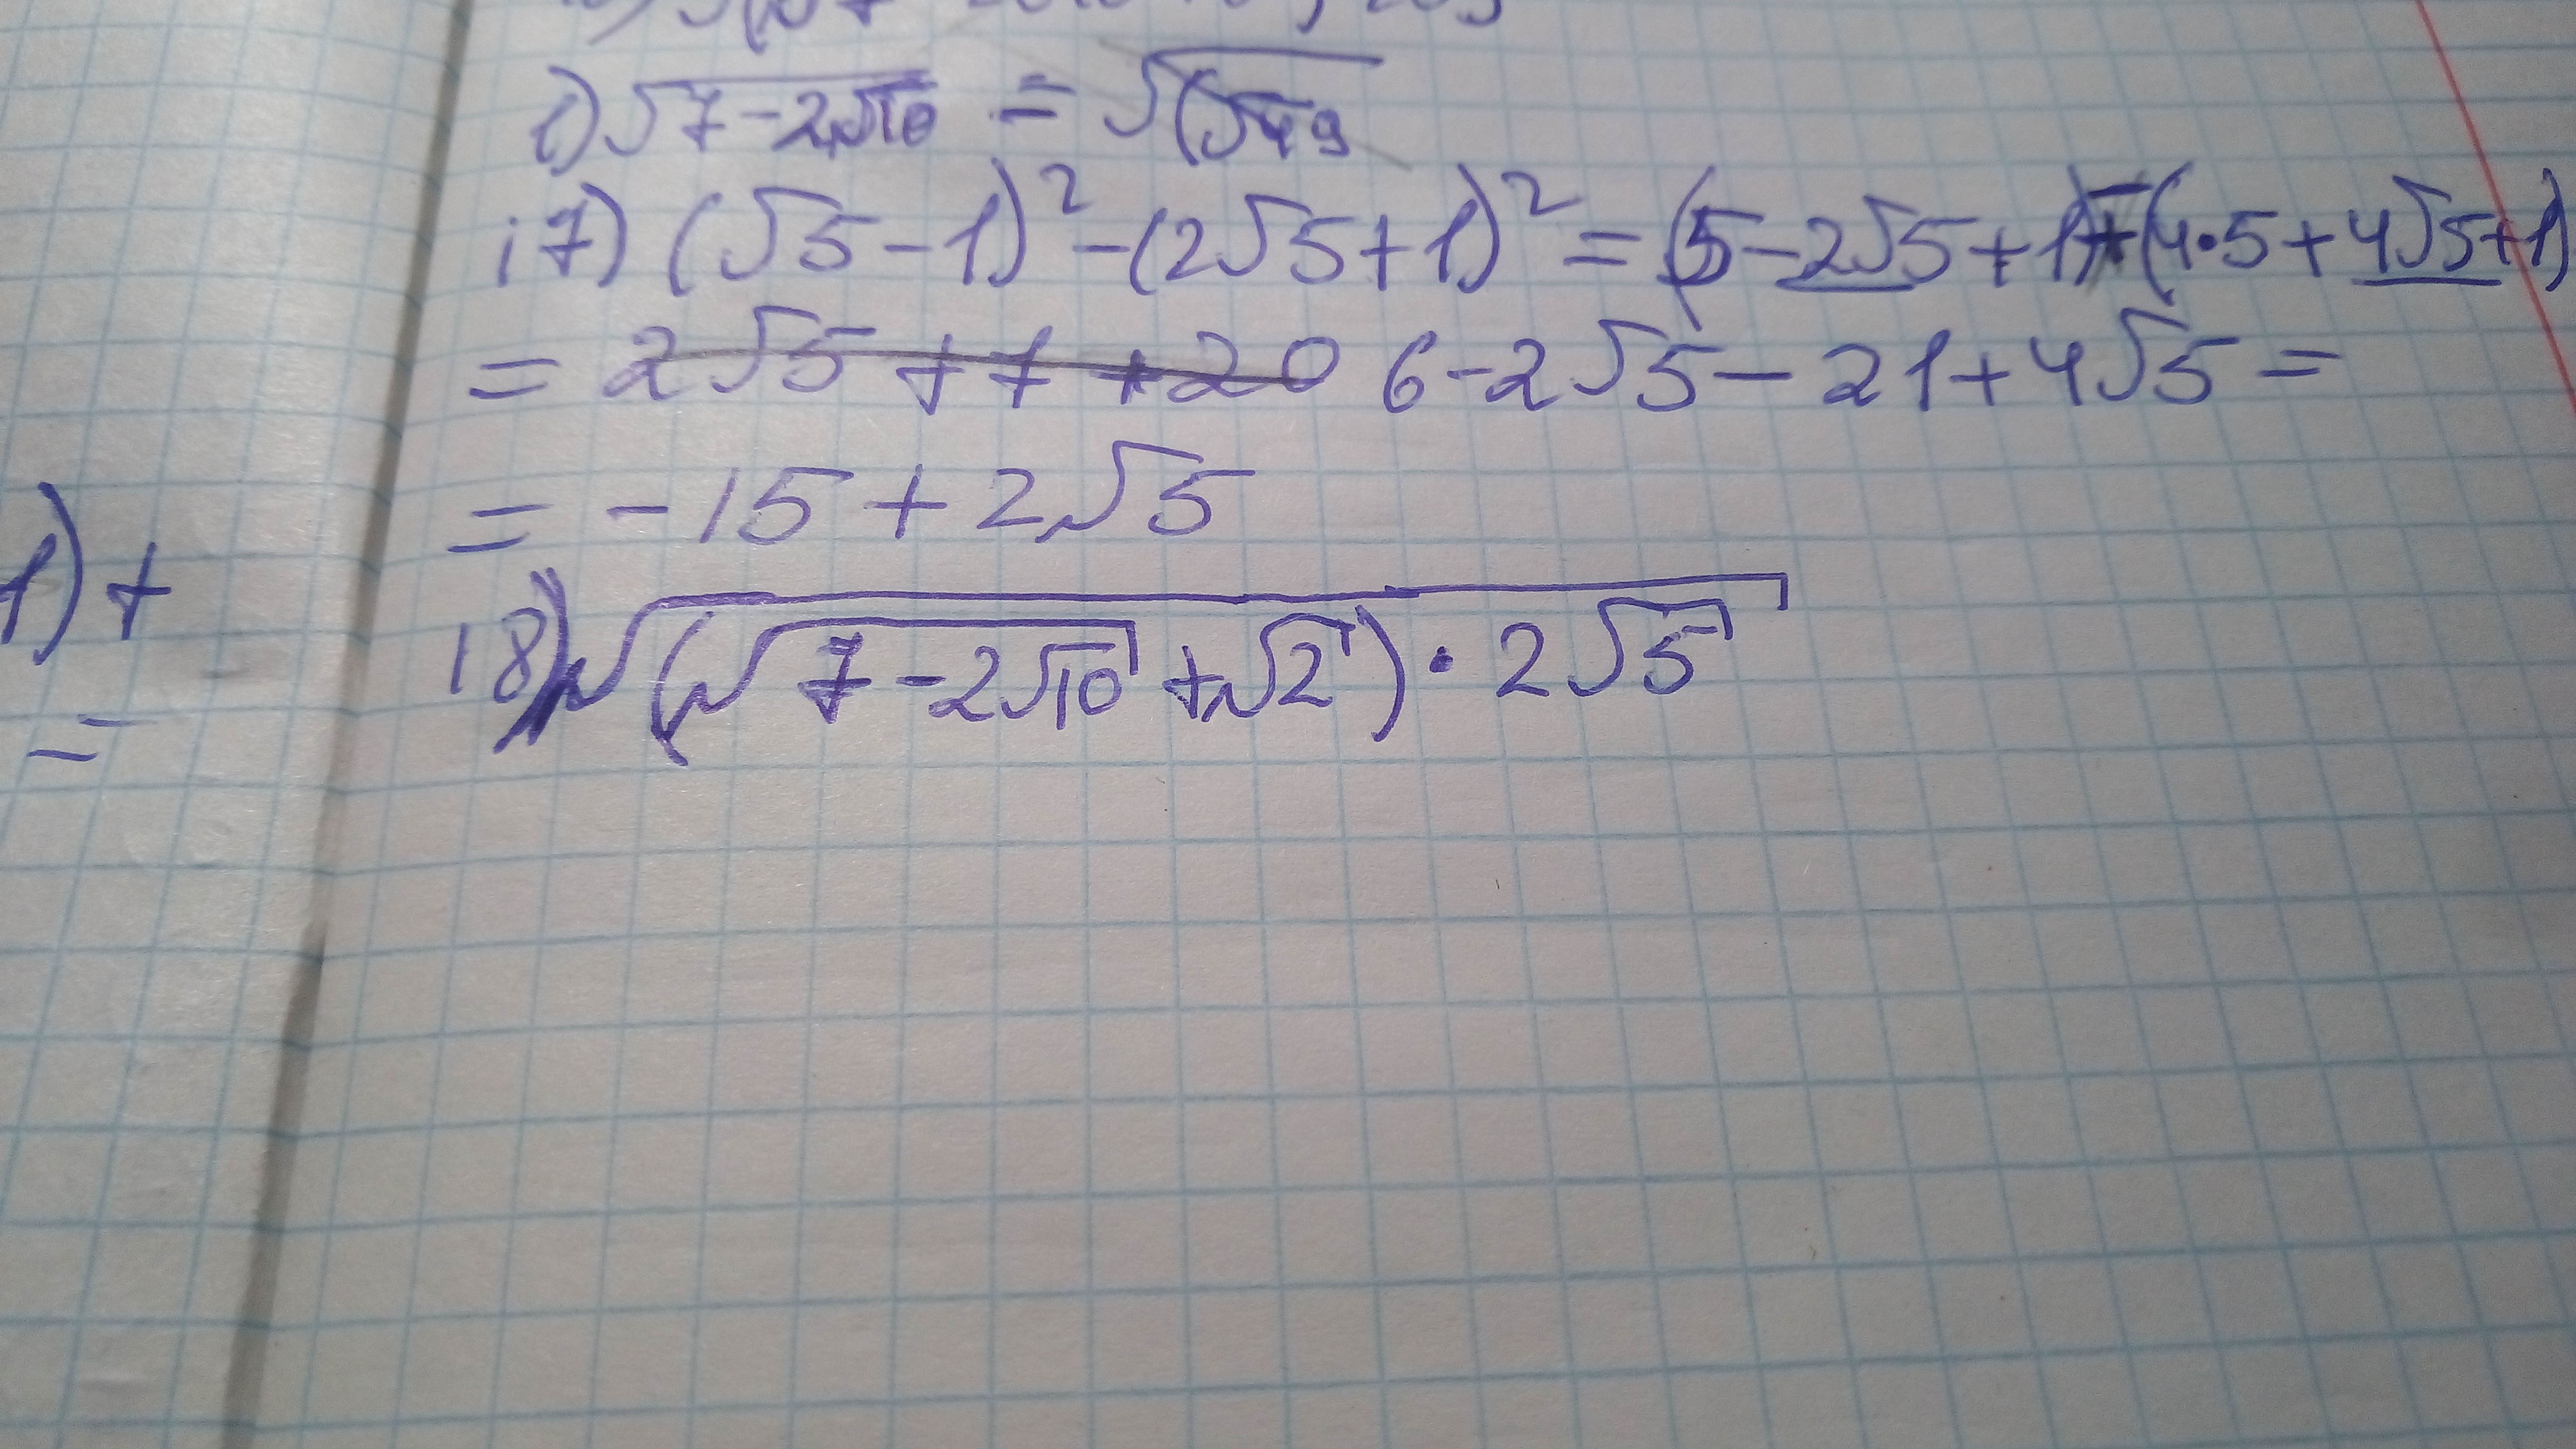 1) √7-2√10 = √(√49
17) (√5-1)²-(2√5+1)² = (5-2√5+1)-(4·5+4√5+1)
= 2√5+7+20 6-2√5-21+4√5=
= -15+2√5
1)+
18) √(√7-2√10+√2)·2√5
=